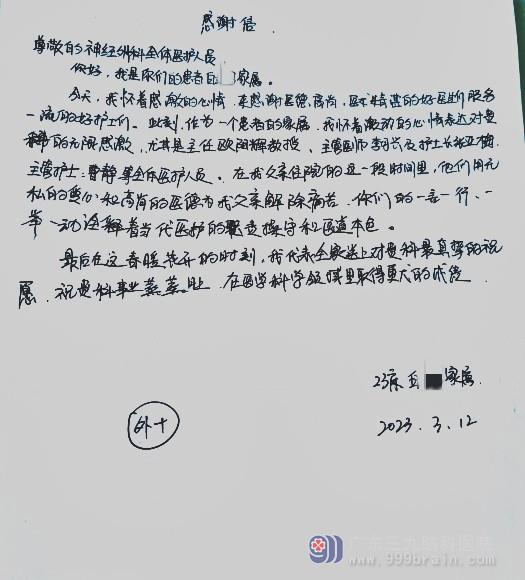 感谢信
尊敬的神经外科全体医护人员
你好,我是你们的患者 家属。
今天,我怀着感激的心情,来感谢医德高尚,医术精甚的好医生们服务
一流的好护士们。此刻,作为一个患者的家属,我怀着激动的心情表达对贵
科的无限感激,尤其是主任欧阳辉教授、主管医师李 及护士长 
主管护士:曹静等全体医护人员。在我父亲住院的这一段时间里,他们用无
私的爱心和高尚的医德为我父亲解除痛苦,你们的一言一行、一
举一动诠释着当代医护的职责操守和医道本色。
最后在这春暖花开的时刻,我代表全家送上对贵科最真挚的祝
愿,祝贵科事业蒸蒸日上,在医学科学领域里取得更大的成绩
23床 家属
2023.3.12
外十
广东三九脑科医院
www.999brain.com